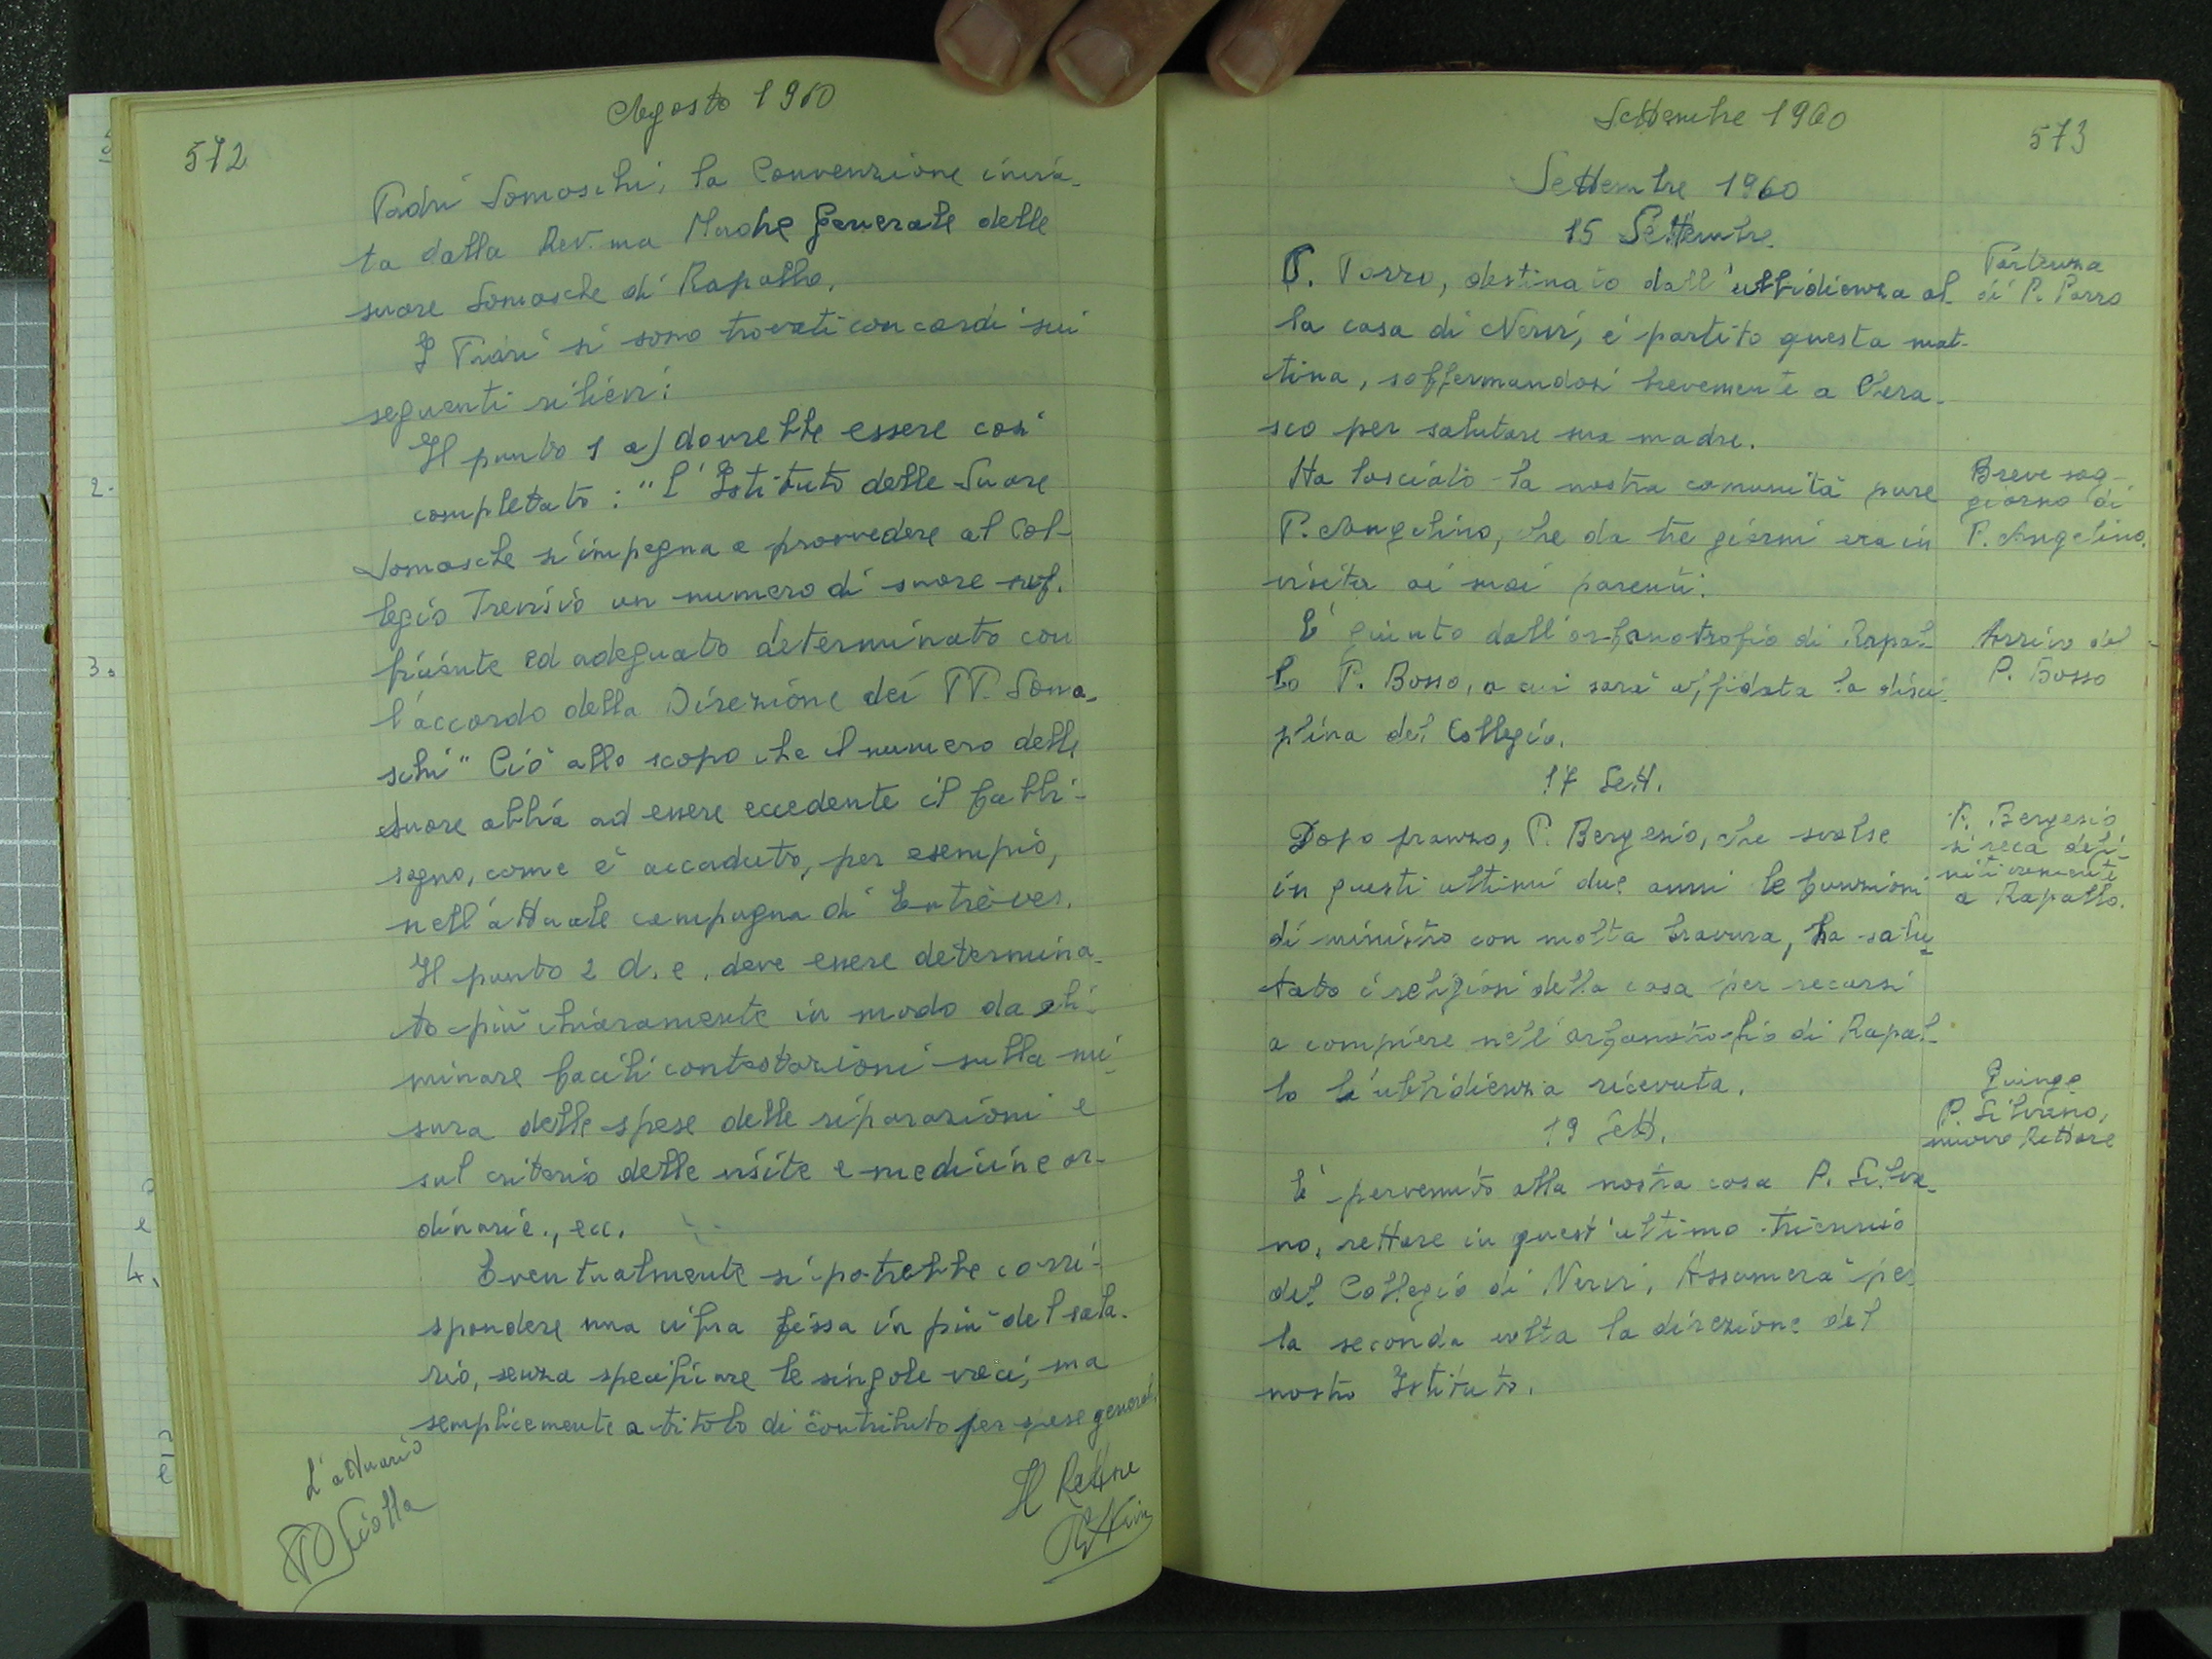 572
Agosto 1960
Padri Somaschi, la Convenzione invia-
ta dalla Rev.ma Madre Generale delle
suore Somasche di Rapallo.
I Padri si sono trovati concordi sui
seguenti rilievi:
Il punto 1 a) dovrebbe essere così
completato: "L'Istituto delle Suore
Somasche s'impegna a provvedere al Col-
legio Trevisio un numero di suore suf-
ficiente ed adeguato determinato con
l'accordo della Direzione dei PP. Soma-
schi" Ciò allo scopo che il numero delle
suore abbia ad essere eccedente il fabbi-
sogno, come è accaduto, per esempio,
nell'attuale campagna di Entrèves.
Il punto 2 d. e. deve essere determina-
to più chiaramente in modo da eli-
minare facili contestazioni sulla mi-
sura delle spese delle riparazioni e
sul criterio delle visite e medicine or-
dinarie., ecc.
Eventualmente si potrebbe corri-
spondere una cifra fissa in più del sala-
rio, senza specificare le singole voci, ma
semplicemente a titolo di contributo per spese general.
L'attuario
Il Rettore
2.
3.
4.
573
Settembre 1960
Settembre 1960
15 Settembre
P. Porro, destinato dall'ubbidienza al-
la casa di Nervi, è partito questa mat-
tina, soffermandosi brevemente a Chera-
sco per salutare sua madre.
Partenza
di P. Porro
Ha lasciato la nostra comunità pure
P. Angelino, che da tre giorni era in
visita ai suoi parenti.
Breve sog-
giorno di
P. Angelino.
E' giunto dall'orfanotrofio di Rapal-
lo P. Bosso, a cui sarà affidata la disci-
plina del Collegio.
Arrivo del
P. Bosso
17 Sett.
Dopo pranzo, P. Bergesio, che svolse
in questi ultimi due anni le funzioni
di ministro con molta bravura, ha salu-
tato i religiosi della casa per recarsi
a compiere nell'orfanotrofio di Rapal-
lo l'ubbidienza ricevuta.
P. Bergesio
si reca defi-
nitivamente
a Rapallo.
19 Sett.
E' pervenuto alla nostra casa P. Silva-
no, rettore in quest'ultimo triennio
del Collegio di Nervi. Assumerà per
la seconda volta la direzione del
nostro Istituto.
Giunge
nuovo Rettore